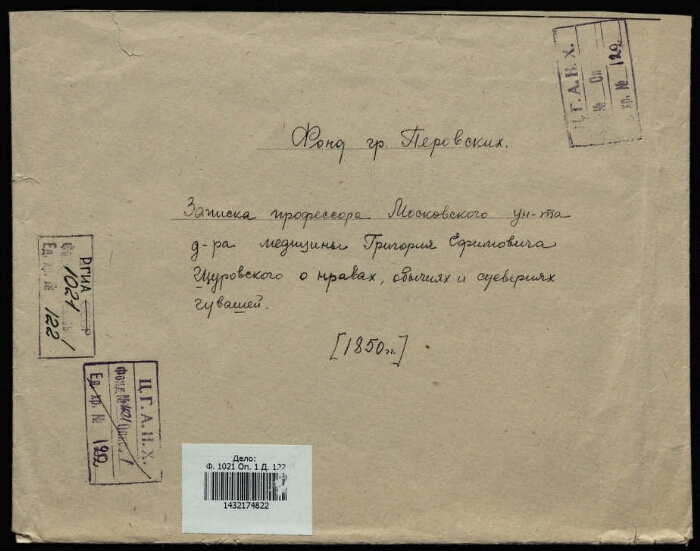 Ц.Г.А.Н.Х.
№ Оп
хр. № 122
Фонд гр. Перовских.
Записка профессора Московского ун-та
д-ра медицины Григория Ефимовича
Щуровского о нравах, обычиях и суевериях
чувашей.
[1850гг.]
РГИА
1021 1
Ед. хр. № 122
Ц.Г.А.Н.Х.
Фонд № 1021 Опись 1
Ед. хр. № 122
Дело:
Ф. 1021 Оп. 1 Д. 122
1432174822